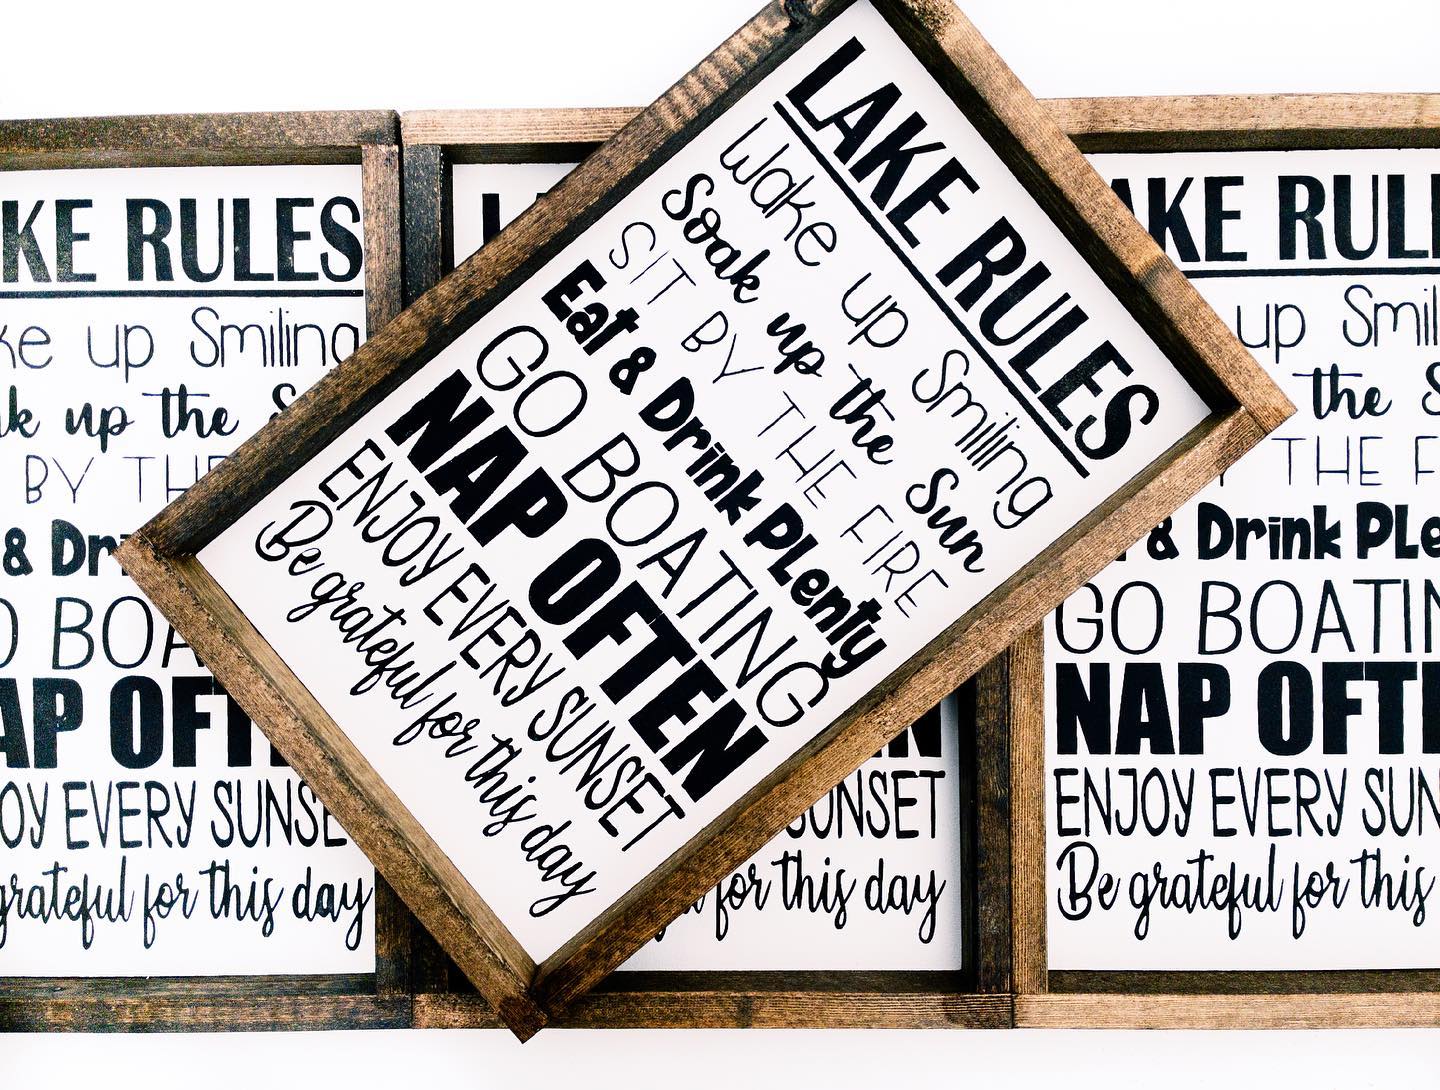 LAKE RULES
Wake up Smiling
Soak up the Sun
SIT BY THE FIRE
Eat & Drink PLenty
GO BOATING
NAP OFTEN
ENJOY EVERY SUNSET
Be grateful for this day
KE RULES
ke up Smiling
up the
BY THE
& Dri
BOA
AP OFT
OY EVERY SUNSE
grateful for this day
SUNSET
for this day
AKE RUL
up Smil
the S
THE F
& Drink PLe
GO BOATIN
NAP OFT
ENJOY EVERY SUN
Be grateful for this